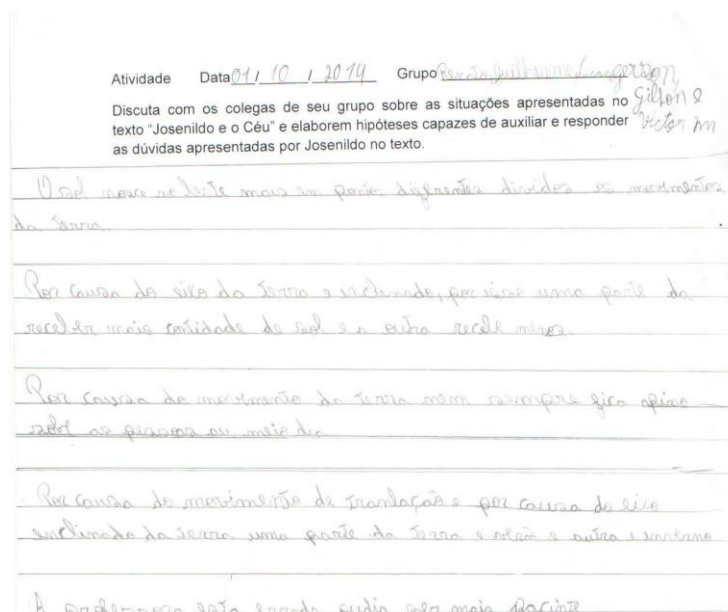 Atividade Data 01 / 10 / 2014 Grupo Renato, Guilherme, Luiz gerson,
Gilton e
Discuta com os colegas de seu grupo sobre as situações apresentadas no
Victor m
texto "Josenildo e o Céu" e elaborem hipóteses capazes de auxiliar e responder
as dúvidas apresentadas por Josenildo no texto.
O sol nasce no leste mais em pontos diferentes dividos os movimentos
da terra.
Por causa do eixo da terra e inclinado, por isso uma parte da
receber mais cantidade de sol e a outra recebe menos
Por causa do movimento da terra nem sempre fica apino
sobre as pessoas ou meio dia
Por causa do movimento de tranlação e por causa do eixo
enclinado da terra uma parte da terra e verão e outra e inverno
A esta errada mais